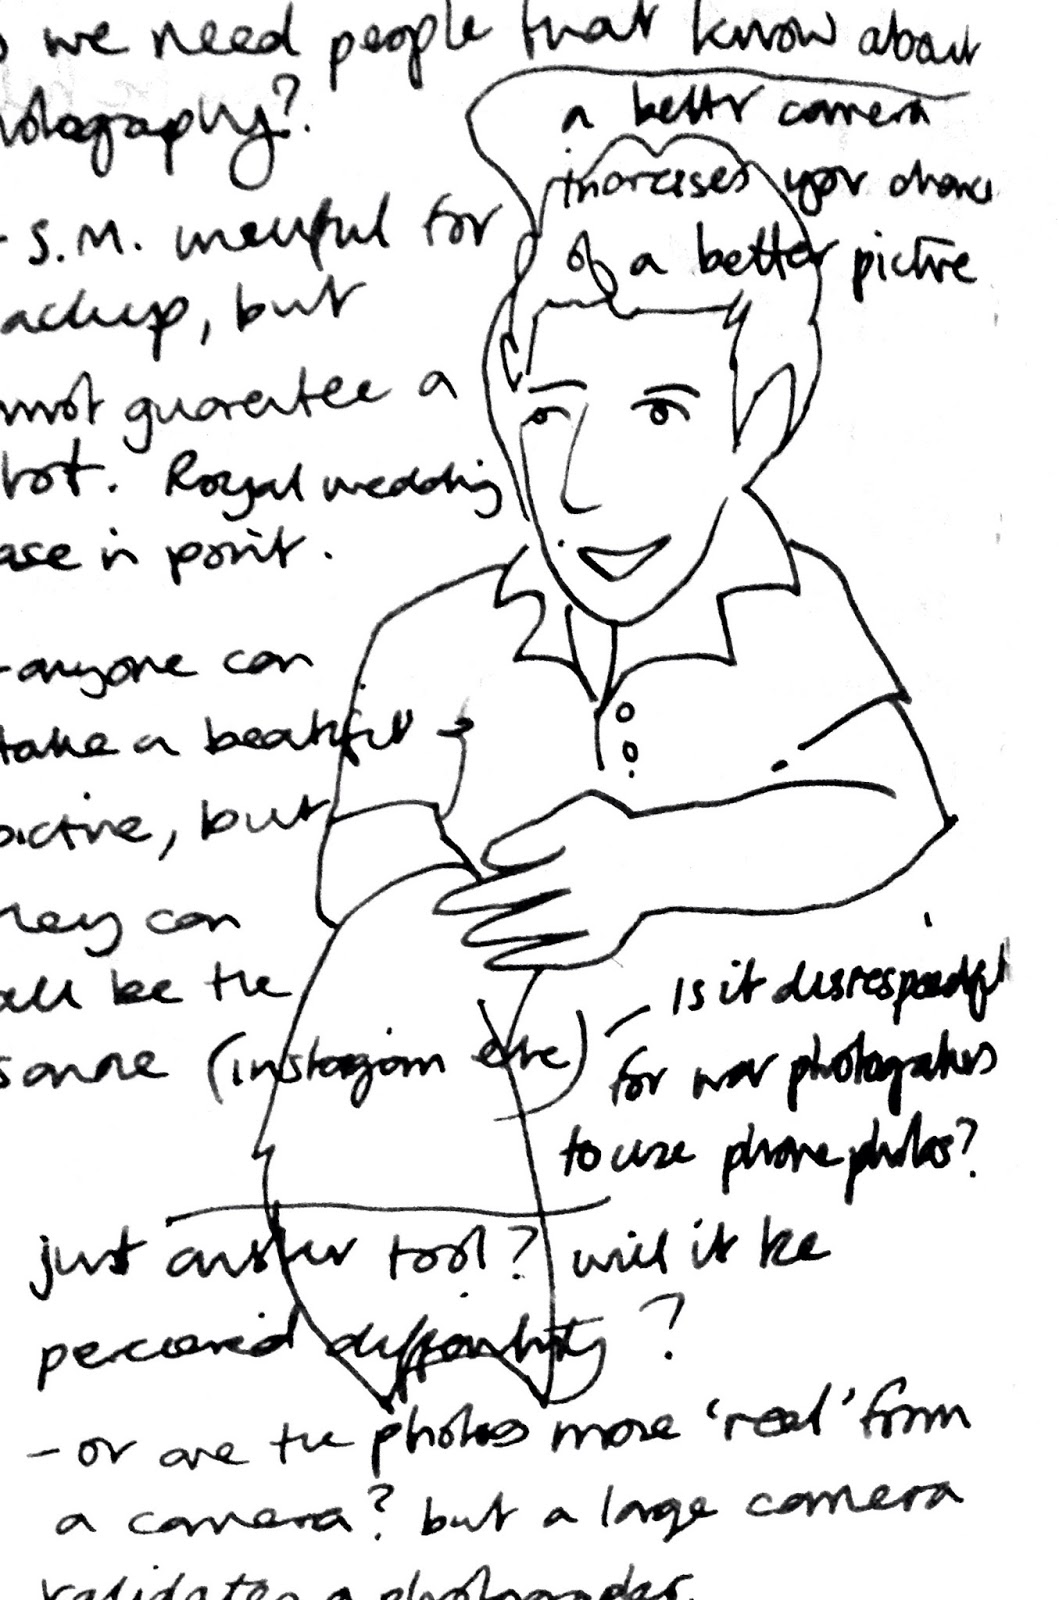 we need people that know about
hotography?
a better camera
increases your chance
of a better picture
- S.M. useful for
ackup, but
nnot guarantee a
hot. Royal wedding
ase in point.
- anyone can
take a beautiful
picture, but
hey can
all be the
same (instagram etc)
- Is it disrespectful
for war photographers
to use phone photos?
just another tool? will it be
perceived differently?
- or are the photos more 'real' from
a camera? but a large camera
validates a photographer.